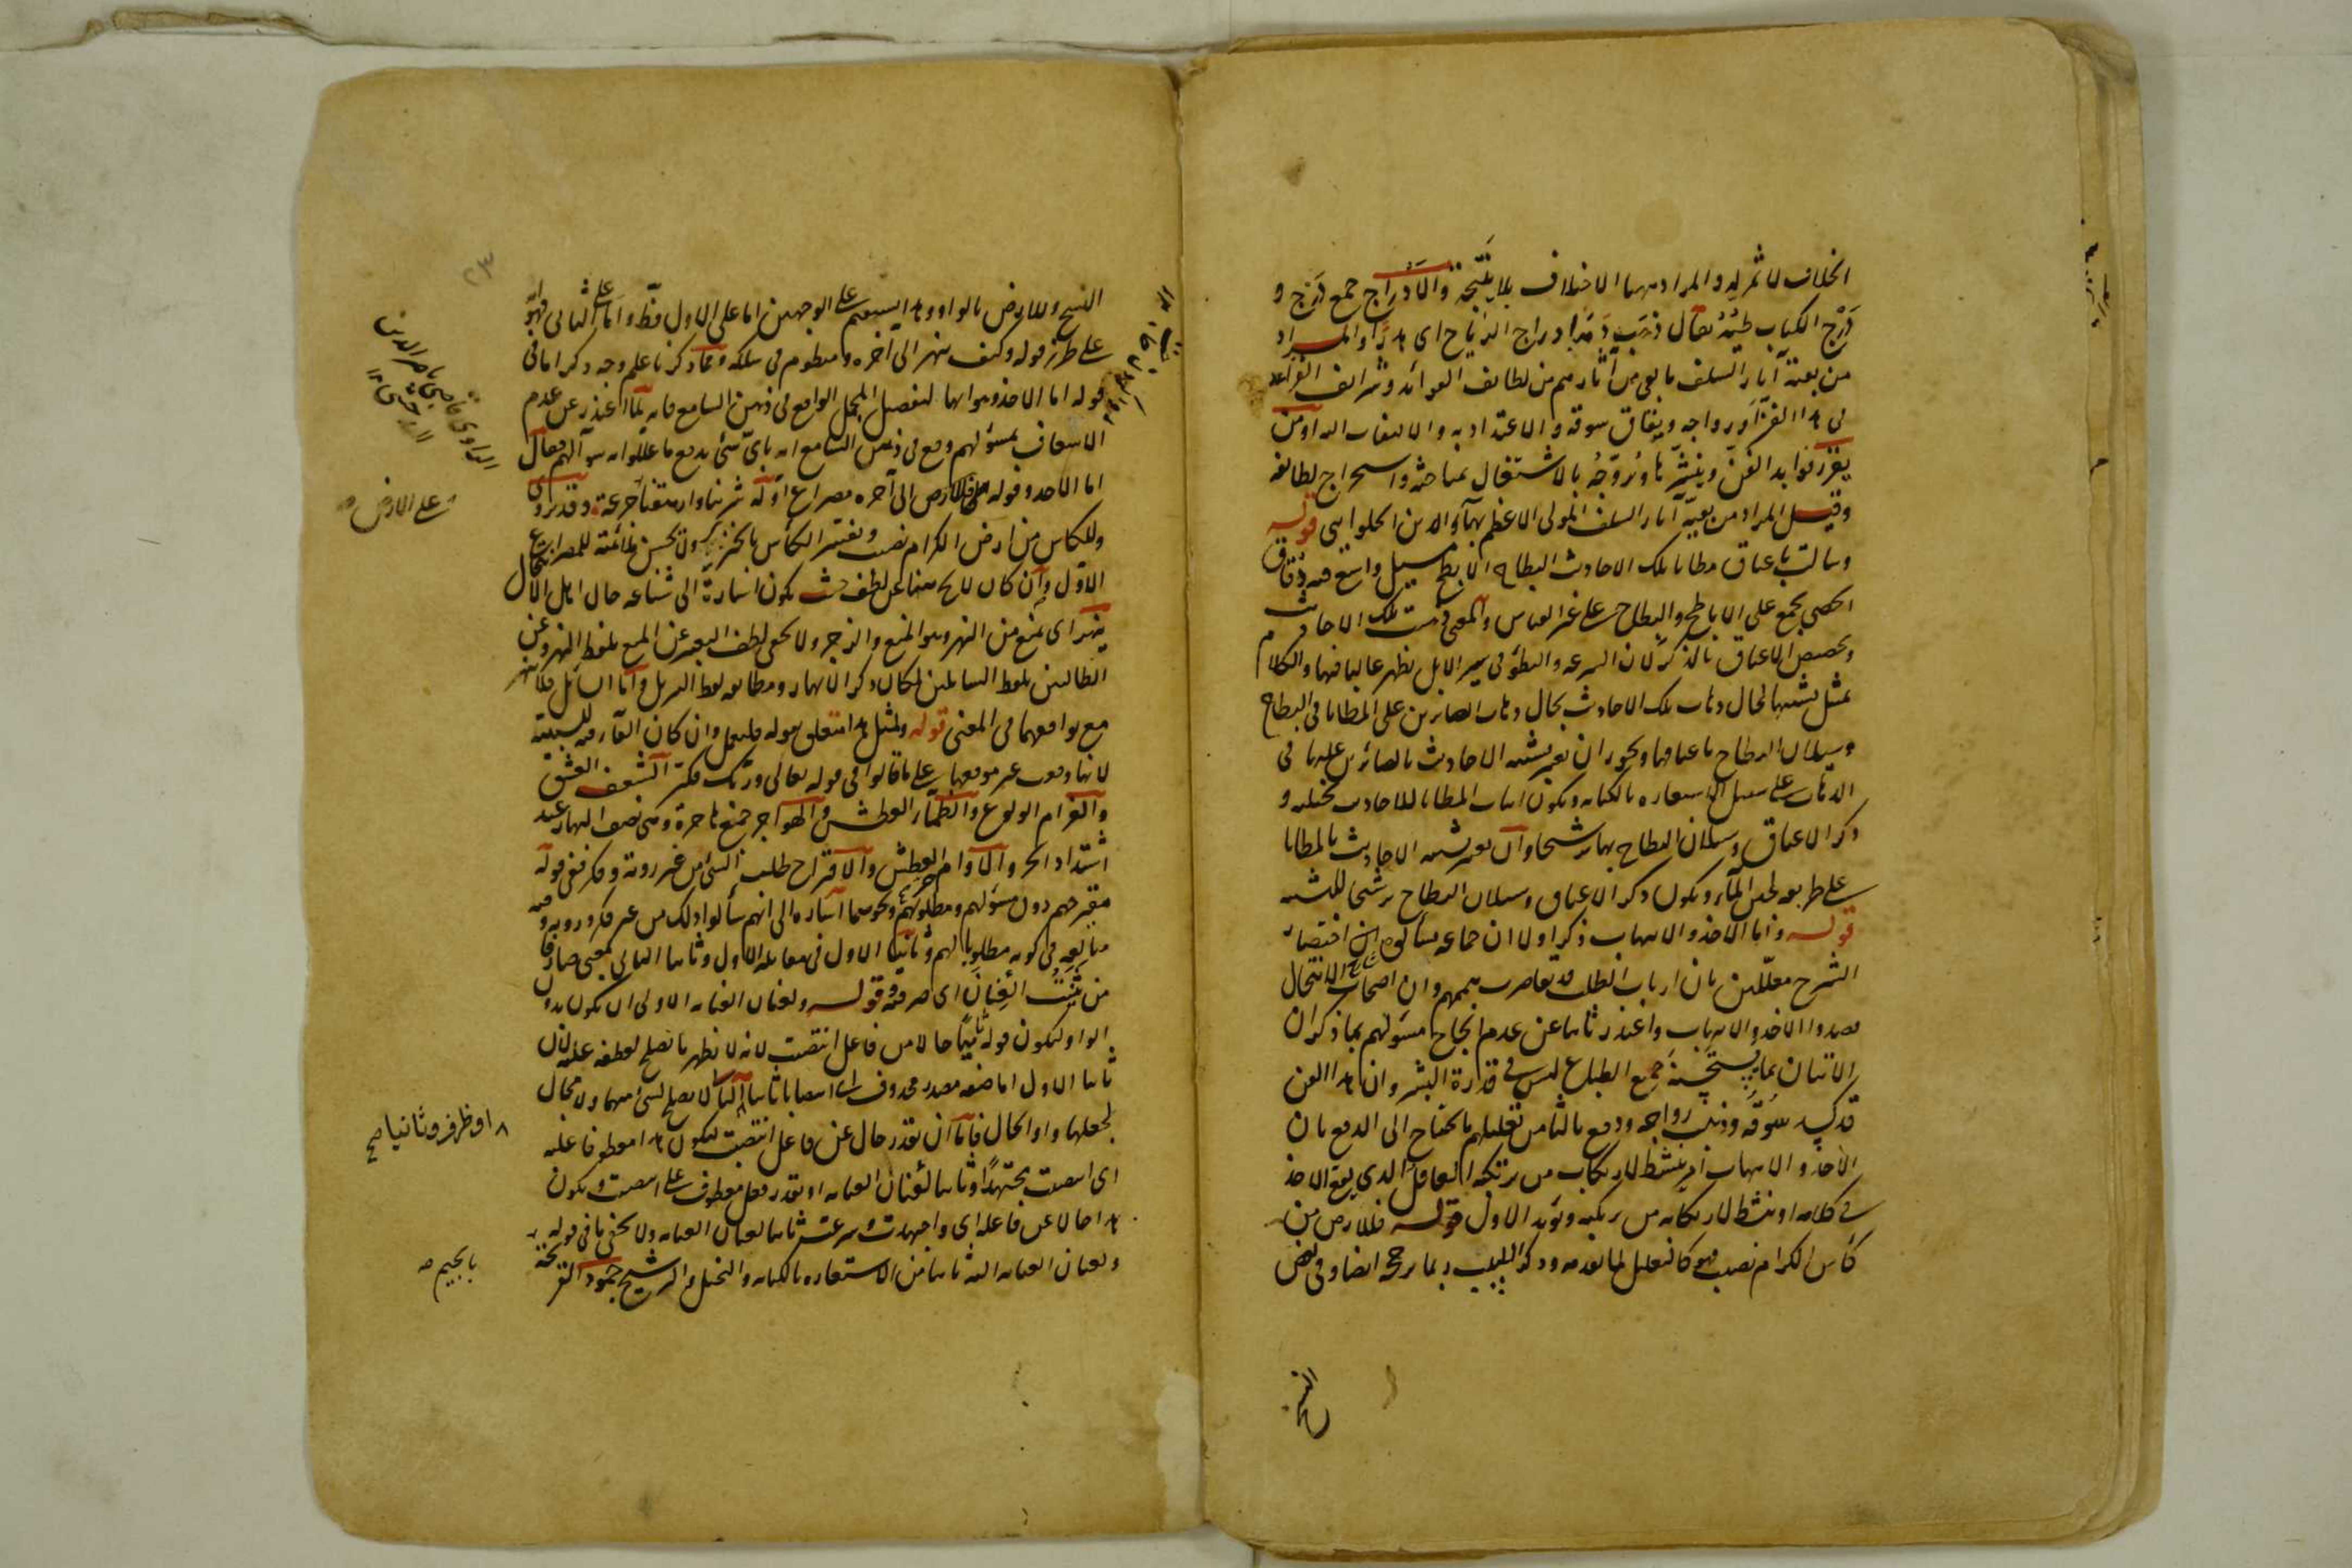 الخلاف لا ثمر له والمراد بهما الاختلاف بلا نتيجة والادراج جمع درج و
درج الكتاب طيه يقال ذهب دمه ادراج الرياح اى هدرا والمراد
من بقية آثار السلف ما بقى من آثارهم من لطائف العوائد وشرائف الفوائد
فى هذا الفن او رواجه ونفاق سوقه والاعتداد به والالتفات اليه او من
يعرف فوايد الفن وينشرها ويروجه بالاشتغال بمباحثه واستخراج لطائفه
وقيل المراد من بقية آثار السلف المولى الاعظم بهاء الدين الحلوايى قوله
وسالت باعناق مطايا تلك الاحاديث البطاح الابطح مسيل واسع فيه دقاق
الحصى يجمع على الاباطح والبطاح على غير القياس والمعنى ذهبت تلك الاحاديث
وتخصيص الاعناق بالذكر لان السرعة والبطؤ فى سير الابل يظهر غالبا فيها والكلام
تمثيل تشبيها لحال ذهاب تلك الاحاديث بحال ذهاب السايرين على المطايا فى البطاح
وسيلان البطاح باعناقها ويجوز ان يعتبر تشبيه الاحاديث بالسائرين عليها فى
الذهاب على سبيل الاستعارة بالكناية ويكون اثبات المطايا للاحاديث تخييلية و
ذكر الاعناق وسيلان البطاح بها ترشيحا وان يعتبر تشبيه الاحاديث بالمطايا
على طريقة لجين الماء ويكون ذكر الاعناق وسيلان البطاح ترشيحا للتشبيه
قوله واما الاخذ والانتهاب ذكر اولا ان جماعة سألوه عن اختصار
الشرح معللين بان ارباب الطلب قد تقاصرت هممهم وان اصحاب الانتحال
قصدوا الاخذ والانتهاب واعتذر ثانيا عن عدم انجاح مسؤلهم بما ذكر ان
الاتيان بما يستحسنه جميع الطباع ليس فى قدرة البشر وان هذا الفن
قد كسد سوقه وذهب رواجه ودفع بالثا من تعليلهم ما يحتاج الى الدفع بان
الاخذ والانتهاب امر ينشط لارتكاب من يرتكبه العاقل الذى يقع الاخذ
فى كلامه او ينشط لارتكابه من يرتكبه ويؤيد الاول قوله فللارض من
كأس الكرام نصيب فهو كالتعليل لما تقدمه وذكر اللبيب ربما يرجحه ايضا وفى بعض
النسخ
٢٣
النسخ وللارض بالواو وهذا يستقيم على الوجهين اما على الاول فظ واما على الثانى فهو
على طرز قوله وكيف ينهر الى آخره ومنظوم فى سلكه وقد ذكرنا علم وجه ذكر اما فى
قوله اما الاخذ وهو انها لتفصيل المجمل الواقع فى ذهن السامع فانه لما اعتذر عن عدم
الاسعاف بمسؤلهم وقع فى ذهن السامع انه باى شئ يدفع ما عللوا به سؤالهم فقال
اما الاخذ وقوله فللارض الى آخره مصراع اوله شربنا واهرقنا جرعة وقد يروى
وللكأس من ارض الكرام نصيب وتفسير الكأس بالخزف ولا يحسن ملائمته للمصراع
الاول وان كان لا يخ معنا عن لطف حيث يكون اشارة الى شناعة حال اهل الانتحال
ينهر اى يمنع من النهر وهو المنع والزجر ولا يخفى لطف التعبير عن المنع بلفظ النهر وعن
الطالبين بلفظ السائلين لمكان ذكر الانهار ومطابقه لفظ التنزيل واما السائل فلا تنهر
مع توافقهما فى المعنى قوله ولمثل هذا متعلق بقوله فليعمل وان كان الفاء فيه للسببية
لانها وقعت غير موقعها على ما قالوا فى قوله تعالى وربك فكبر الشغف العشق
والغرام الولوع والظمأ العطش والهواجر جمع هاجرة وهى نصف النهار عند
اشتداد الحر والاوام العطش والاقتراح طلب الشئ من غير روية وفكر ففى قوله
مقترحهم دون مسؤلهم ومطلوبهم ونحوهما اشارة الى انهم سألوا ذلك من غير فكر وروية وفيه
مبالغة فى كونه مطلوبا لهم وثانيا الاول فى مقابلة الاول وثانيا الثانى بمعنى صارفا
من ثنيت العنان اى صرفته وقوله ولعنان العناية الاولى ان يكون بدون
الواو ليكون قوله ثانيا حالا من فاعل انتصبت لانه لا يظهر ما يصلح لعطفه عليه لان
ثانيا الاول اما صفة مصدر محذوف اى انتصابا ثانيا ايا ما لا يصلح لشئ منهما ولا مجال
لجعلها واو الحال فاما ان يقدر حال عن فاعل انتصبت ليكون هذا معطوفا عليه
اى انتصبت مجتهدا وثانيا لعنان العناية او يقدر فعل معطوف على انتصبت ويكون
هذا حالا عن فاعله اى واجتهدت وشرعت ثانيا لعنان العناية ولا يخفى ما فى قوله
ولعنان العناية اليه ثانيا من الاستعارة بالكناية والتخييل والترشيح جمود القريحة
على الارض صح
او ظرف وثانيا صح
بالجيم صح